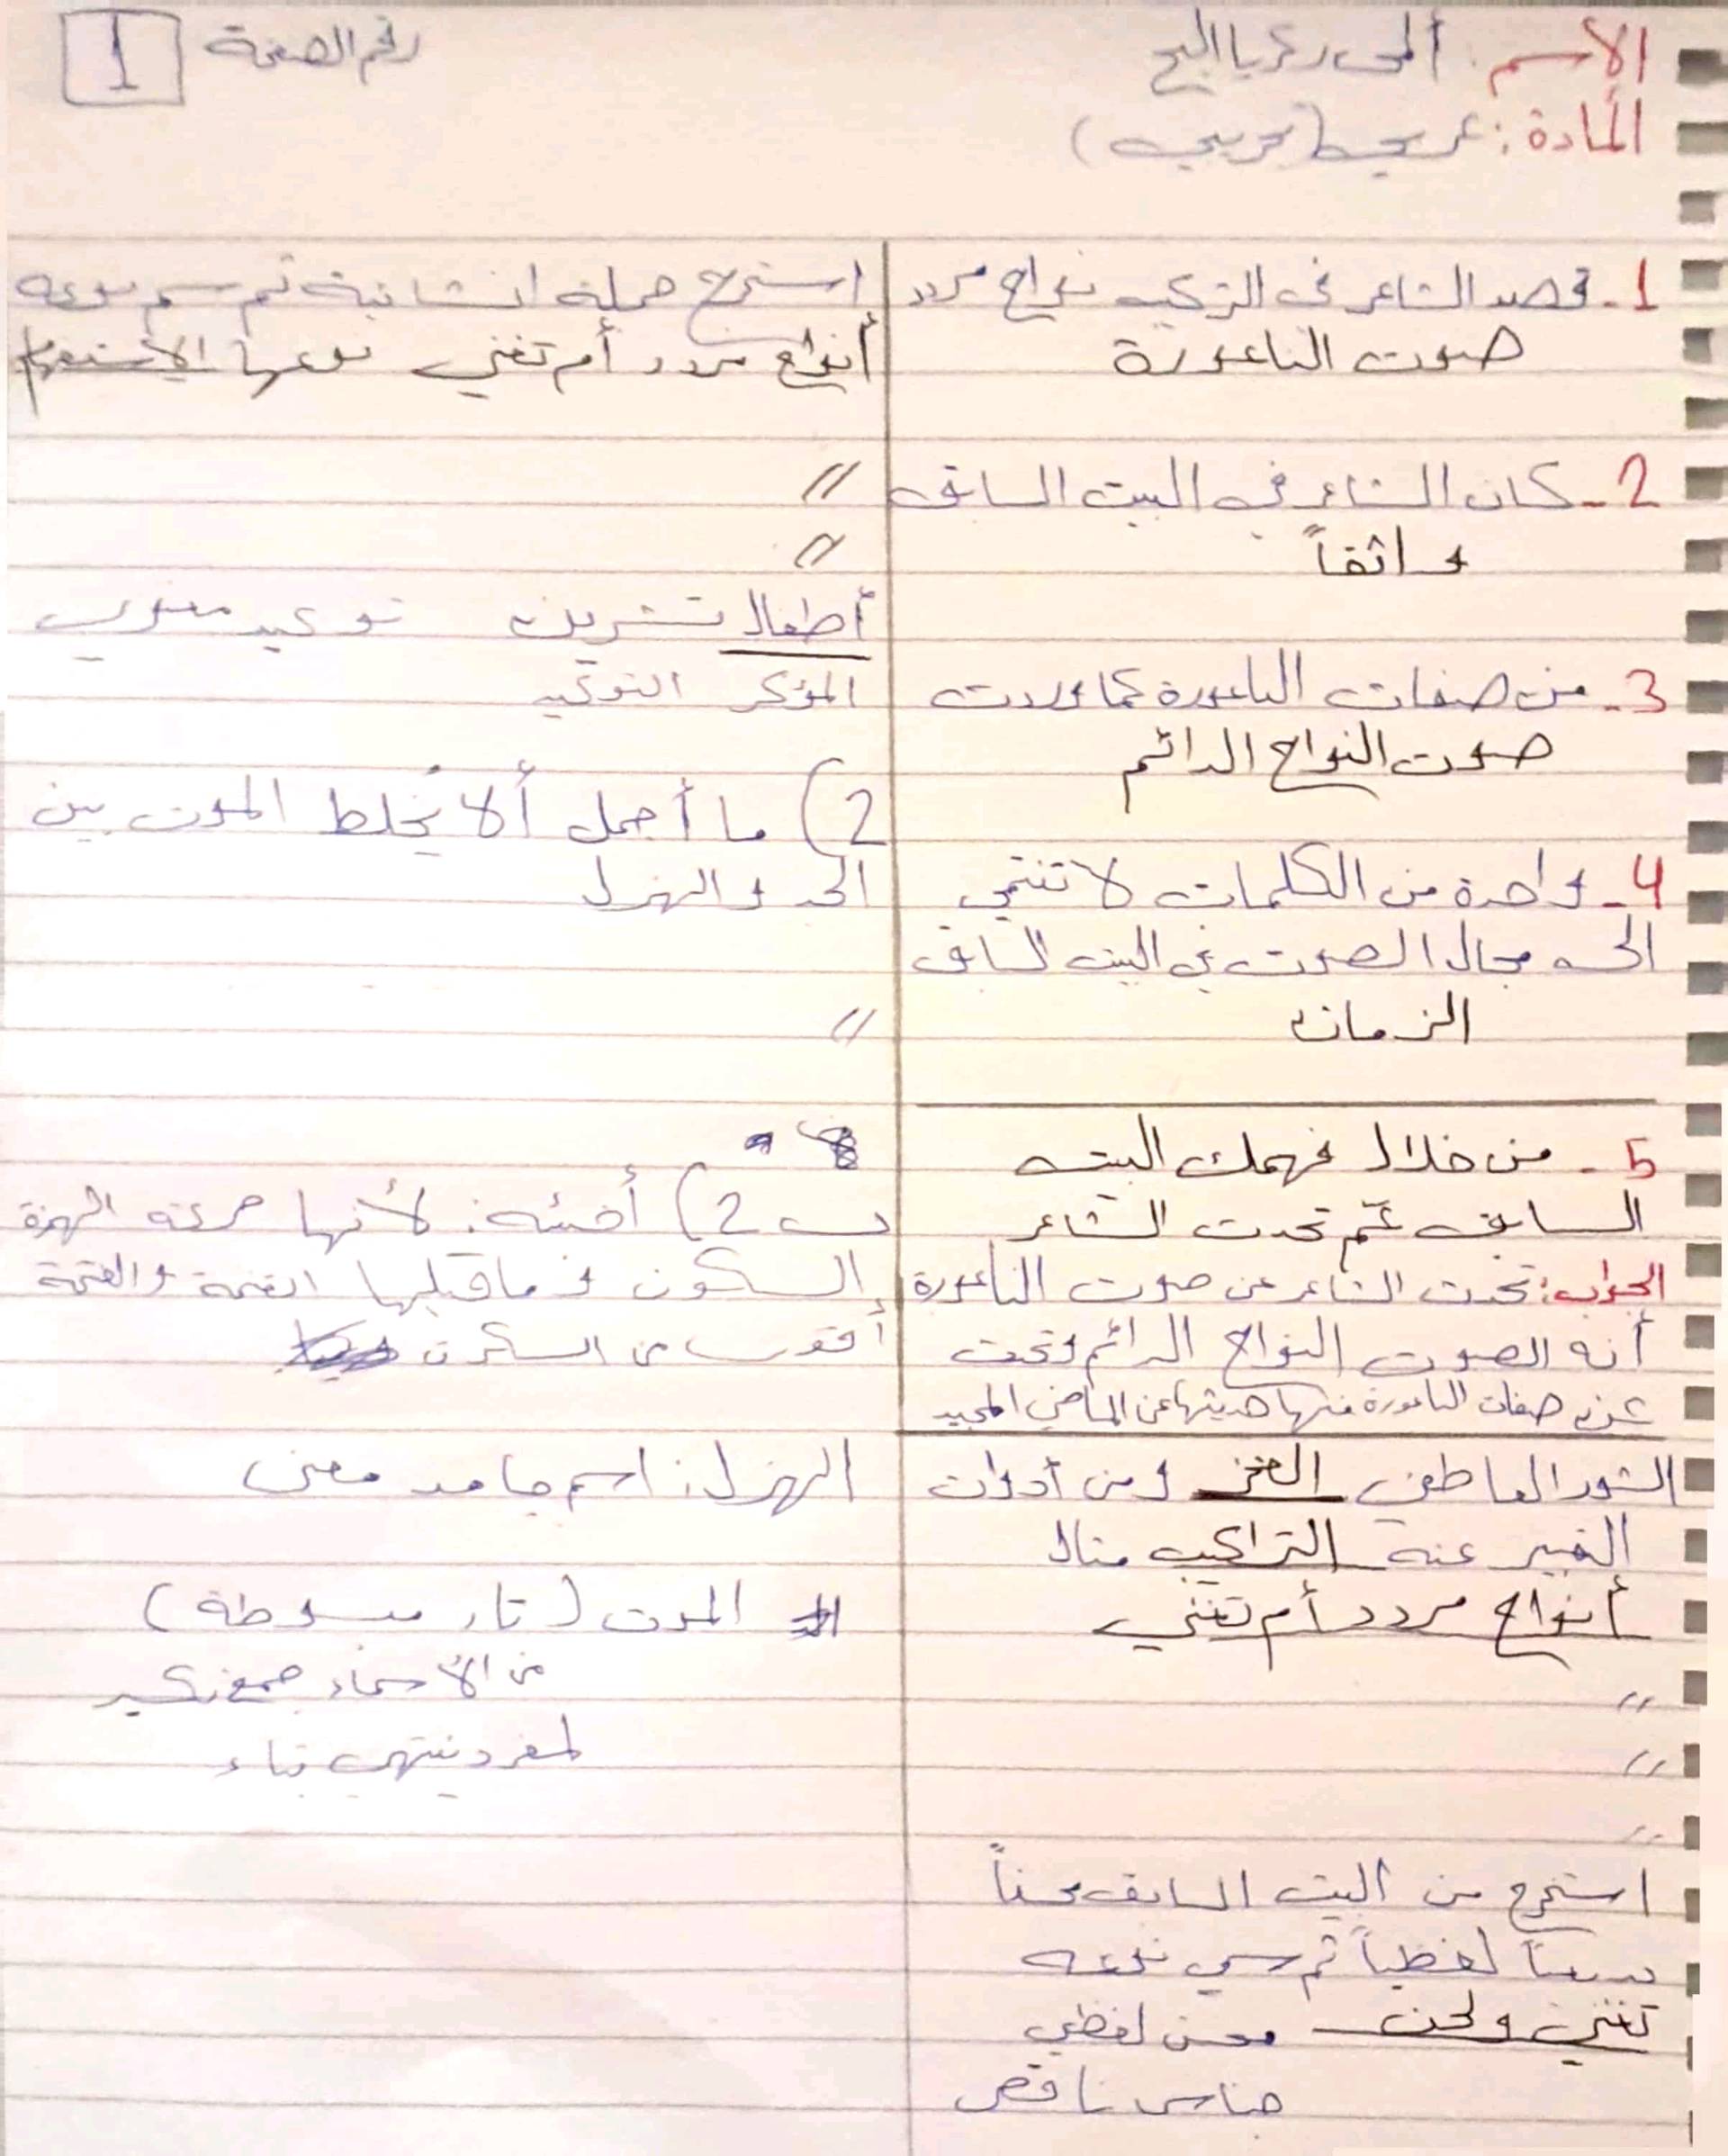 الأسم: ألمى زكريا البج
رقم الصفحة 1
المادة: عربي (تجريبي)
1- قصد الشاعر في التركيب نواح مردد
صوت الناعورة
2- كان الشاعر في البيت السابق
واثقاً
3- من صفات الناعورة كما وردت
صوت النواح الدائم
4- واحدة من الكلمات لا تنتمي
الى مجال الصوت في البيت السابق
الزمان
5- من خلال فهمك البيت
السابق عمّ تحدث الشاعر
الجواب: تحدث الشاعر عن صوت الناعورة
أنه الصوت النواح الدائم وتحدث
عن صفات الناعورة منها حديثها عن الماضي المجيد
الشعور العاطفي الفخر ومن أدوات
التعبير عنه التراكيب مثال
أنواح مردد أم تغني
"
"
"
استخرج من البيت السابق محسناً
بديعياً لفظياً ثم سمي نوعه
تغني ولحن محسن لفظي
جناس ناقص
استخرج جملة انشائية ثم سم نوعه
أنواح مردد أم تغني نوعها الاستفهام
"
"
أطفال تشرين توكيد معنوي
المؤكد التوكيد
2) ما أجمل ألا يُخلط الموت بين
الجد والهزل
"
ب 2) أفئدة: لأنها حركة الهمزة
السكون وما قبلها الفتحة والفتحة
أقوى من السكون
الهزل: اسم جامد معنى
الموت (تاء مبسوطة)
من الأسماء جمع تكسير
لمفرد ينتهي بتاء